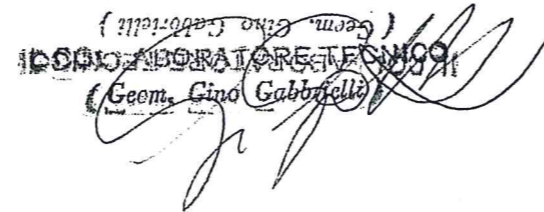 ( Geom. Gino Gabbrielli )
IL COLLABORATORE TECNICO
( Geom. Gino Gabbrielli )